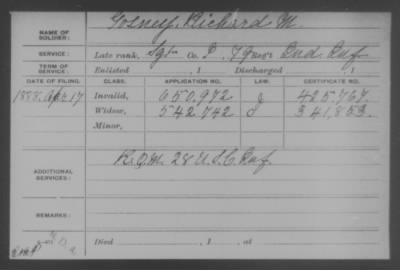 Gosney, Richard M.
NAME OF SOLDIER:
SERVICE: Late rank, Sgt Co. D, 79 Reg't Ind. Inf.
TERM OF SERVICE: Enlisted , 1 Discharged , 1
DATE OF FILING. CLASS. APPLICATION NO. LAW. CERTIFICATE NO.
1888. Apr. 17 Invalid, 650,972 425,767.
Widow, 542,742 341,853.
Minor,
ADDITIONAL SERVICES: R.Q.M. 28 U.S.C. Inf.
REMARKS:
Died , 1 , at